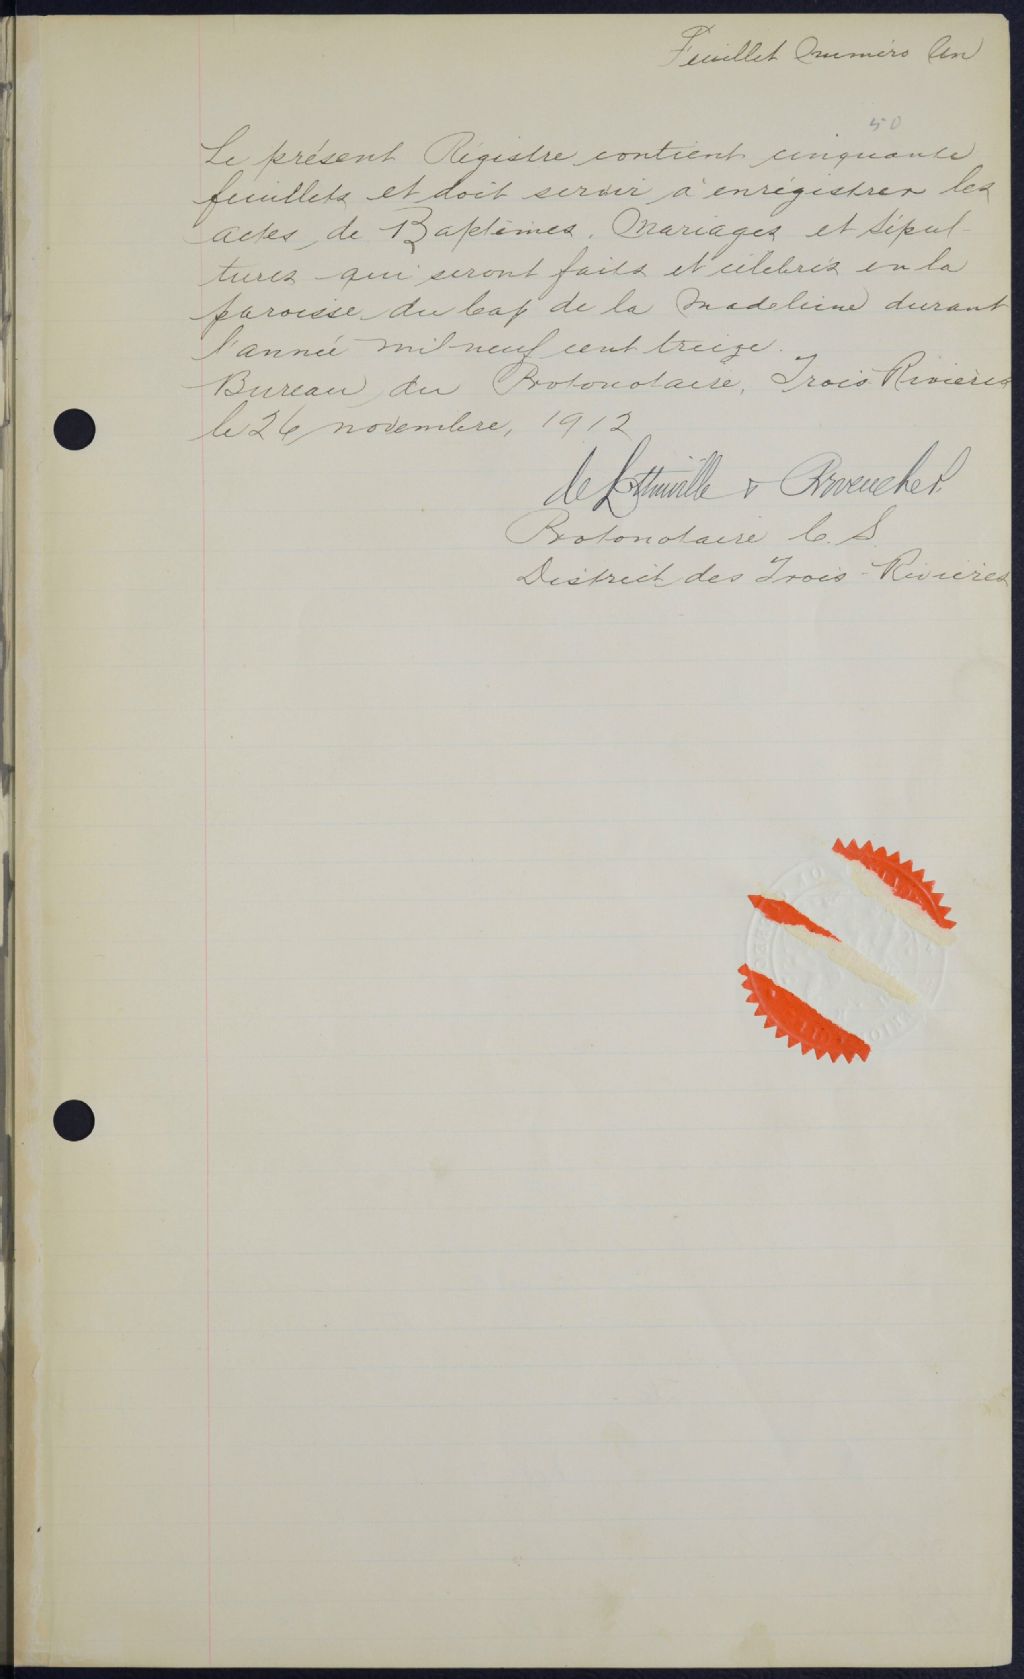 Feuillet Numéro Un
50
Le présent Régistre contient cinquante
feuillets et doit servir à enrégistrer les
actes de Baptêmes, Mariages et Sépul-
tures qui seront faits et célébrés en la
paroisse du Cap de la Madeleine durant
l'année mil neuf cent treize.
Bureau du Protonotaire, Trois Rivières
le 26 novembre, 1912
de Lottinville & Provencher
Protonotaire C. S.
District des Trois-Rivières